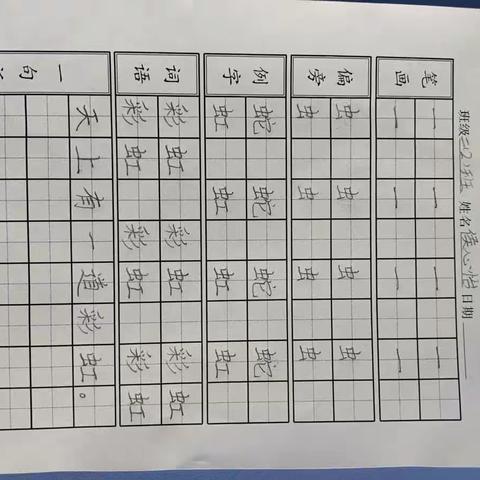 班级 二(2)班 姓名 侯心怡 日期
笔画 一 一 一 一
一 一 一 一
偏旁 虫 虫 虫 虫
虫 虫 虫 虫
例字 蛇 蛇 蛇 蛇
虹 虹 虹 虹
词语 彩虹 彩虹 彩虹
彩虹 彩虹 彩虹
一句 天上有一道彩虹。